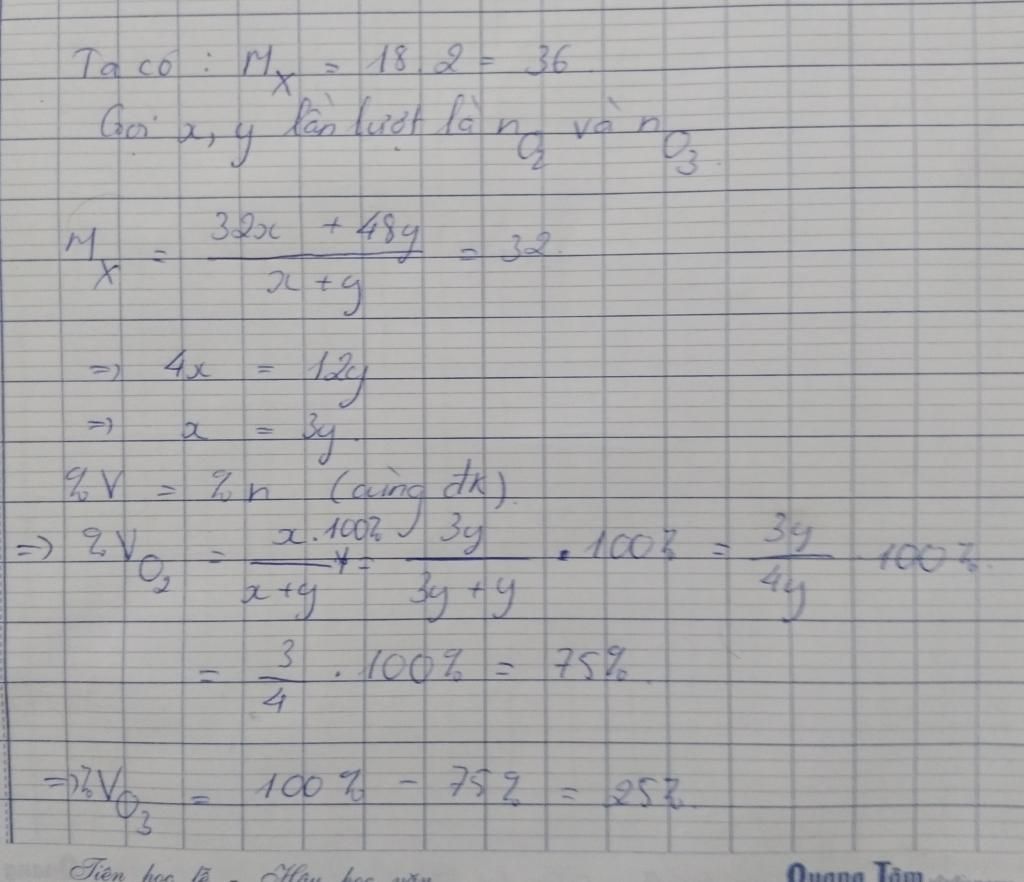 Ta có : M_X = 18.2 = 36
Gọi x, y lần lượt là n_O2 và n_O3.
M_X = (32x + 48y)/(x + y) = 32.
=> 4x = 12y
=> x = 3y.
%V = %n (cùng đk).
=> %V_O2 = (x.100%)/(x+y) = 3y/(3y+y) . 100% = 3y/4y . 100%.
= 3/4 . 100% = 75%.
=> %V_O3 = 100% - 75% = 25%.
Tiên học lễ - Hậu học văn
Quang Tâm